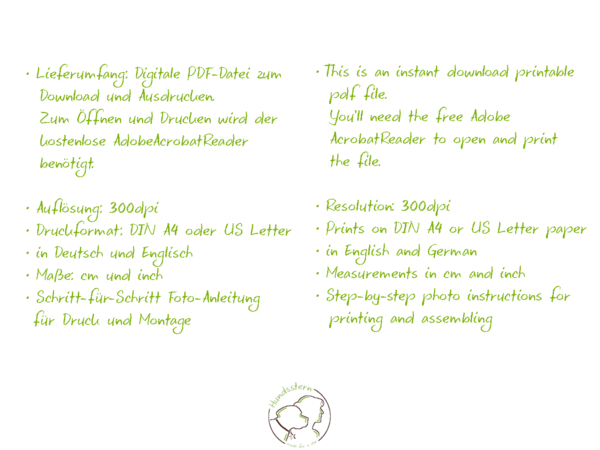 • Lieferumfang: Digitale PDF-Datei zum
Download und Ausdrucken.
Zum Öffnen und Drucken wird der
kostenlose AdobeAcrobatReader
benötigt.
• Auflösung: 300dpi
• Druckformat: DIN A4 oder US Letter
• in Deutsch und Englisch
• Maße: cm und inch
• Schritt-für-Schritt Foto-Anleitung
für Druck und Montage
• This is an instant download printable
pdf file.
You'll need the free Adobe
AcrobatReader to open and print
the file.
• Resolution: 300dpi
• Prints on DIN A4 or US Letter paper
• in English and German
• Measurements in cm and inch
• Step-by-step photo instructions for
printing and assembling
Hundsstern